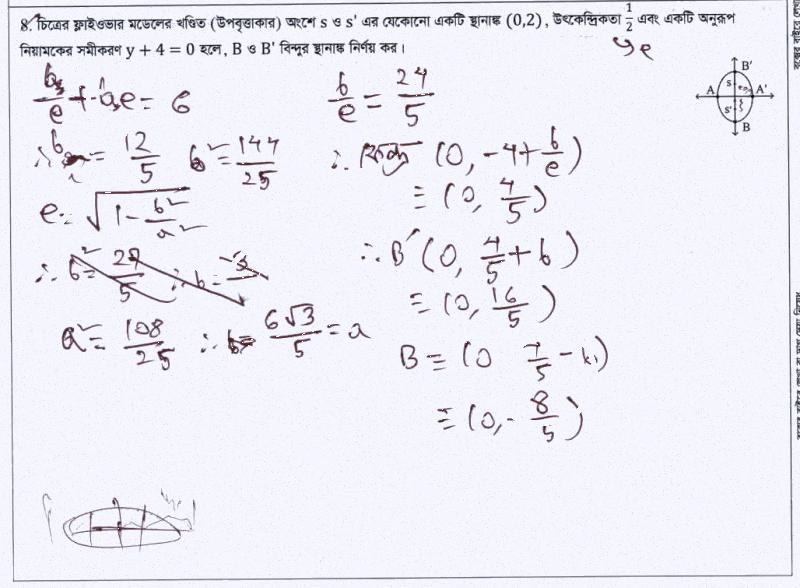 8. চিত্রের ফ্লাইওভার মডেলের খণ্ডিত (উপবৃত্তাকার) অংশে s ও s' এর যেকোনো একটি স্থানাঙ্ক (0,2), উৎকেন্দ্রিকতা 1/2 এবং একটি অনুরূপ
নিয়ামকের সমীকরণ y + 4 = 0 হলে, B ও B' বিন্দুর স্থানাঙ্ক নির্ণয় কর।
e
B'
S
A A'
S'
B
b/e + be = 6
∴ b = 12/5 b² = 144/25
e = √(1 - b²/a²)
a² = 108/25 ∴ 6√3/5 = a
b/e = 24/5
∴ কেন্দ্র (0, -4 + b/e)
≡ (0, 4/5)
∴ B' (0, 4/5 + b)
≡ (0, 16/5)
B ≡ (0
≡ (0, - 8/5)